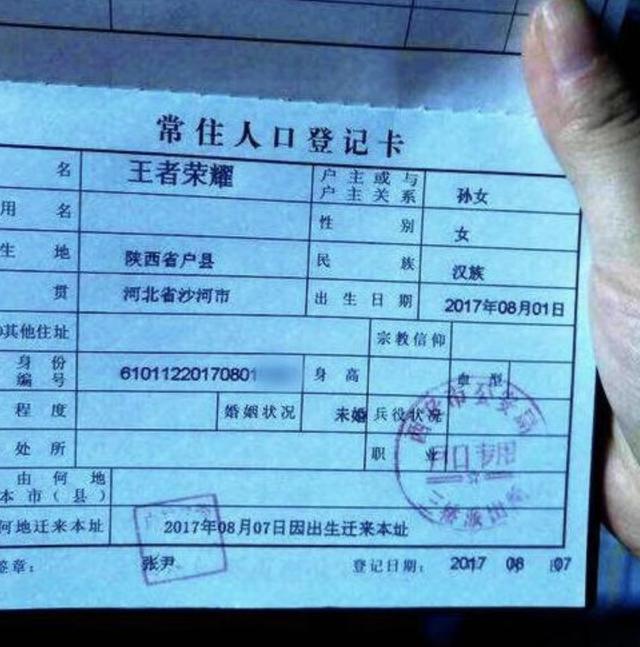 常住人口登记卡
名 王者荣耀 户主或与户主关系 孙女
用名 性别 女
生地 陕西省户县 民族 汉族
贯 河北省沙河市 出生日期 2017年08月01日
其他住址 宗教信仰
身份编号 61011220170801 身高 血型
程度 婚姻状况 未婚 兵役状况
处所 职业
由何地
本市(县)
何地迁来本址 2017年08月07日因出生迁来本址
签章: 张尹 登记日期: 2017 08 07
西安市公安局
户口专用
三桥派出所